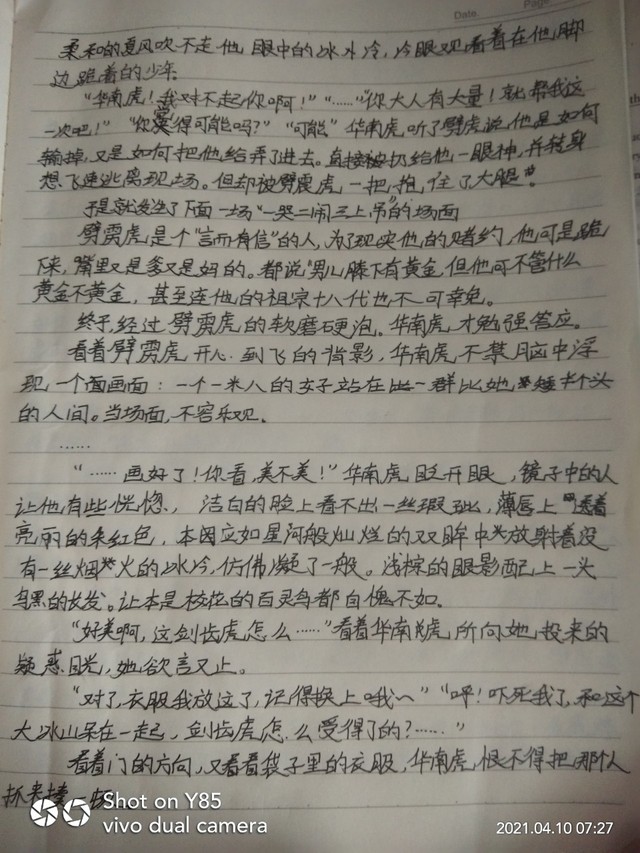 Date.
Page
柔和的夏风吹不走他眼中的冰冷，冷眼观看着在他脚
边跪着的少年
“华南虎！我对不起你啊！”“……”“你大人有大量！就帮我这
一次吧！”“你觉得可能吗？”“可能”华南虎听了劈虎说他是如何
输掉，又是如何把他给弄了进去。直接被扔给他一眼神，并转身
想飞速逃离现场。但却被劈雳虎一把抱住了大腿。
于是就发生了下面一场“一哭二闹三上吊”的场面
劈雳虎是个“言而有信”的人，为了现实他的赌约，他可是跪
下来，嘴里又是爹又是妈的。都说“男儿膝下有黄金，但他可不管什么
黄金不黄金，甚至连他的祖宗十八代也不可幸免。
终于，经过劈雳虎的软磨硬泡。华南虎才勉强答应。
看着劈雳虎开心到飞的背影，华南虎不禁脑中浮
现一个画面：一个一米八的女子站在一群比她矮半个头
的人间。当场面，不容乐观．
……
“……画好了！你看，美不美！”华南虎眨开眼，镜子中的人
让他有些恍惚，洁白的脸上看不出一丝瑕玼，薄唇上透着
亮丽的朱红色，本因立如星河般灿烂的双眸中放射着没
有一丝烟火的冰冷，仿佛凝了一般。浅棕的眼影配上一头
乌黑的长发。让本是校花的百灵鸟都自愧不如．
“好美啊，这剑齿虎怎么……”看着华南虎所向她投来的
疑惑目光，她欲言又止。
“对了，衣服我放这了，记得换上哦～”“呼！吓死我了，和这个
大冰山呆在一起，剑齿虎怎么受得了的？……”
看着门的方向，又看看袋子里的衣服，华南虎恨不得把那个人
抓来揍一顿
Shot on Y85
vivo dual camera
2021.04.10 07:27